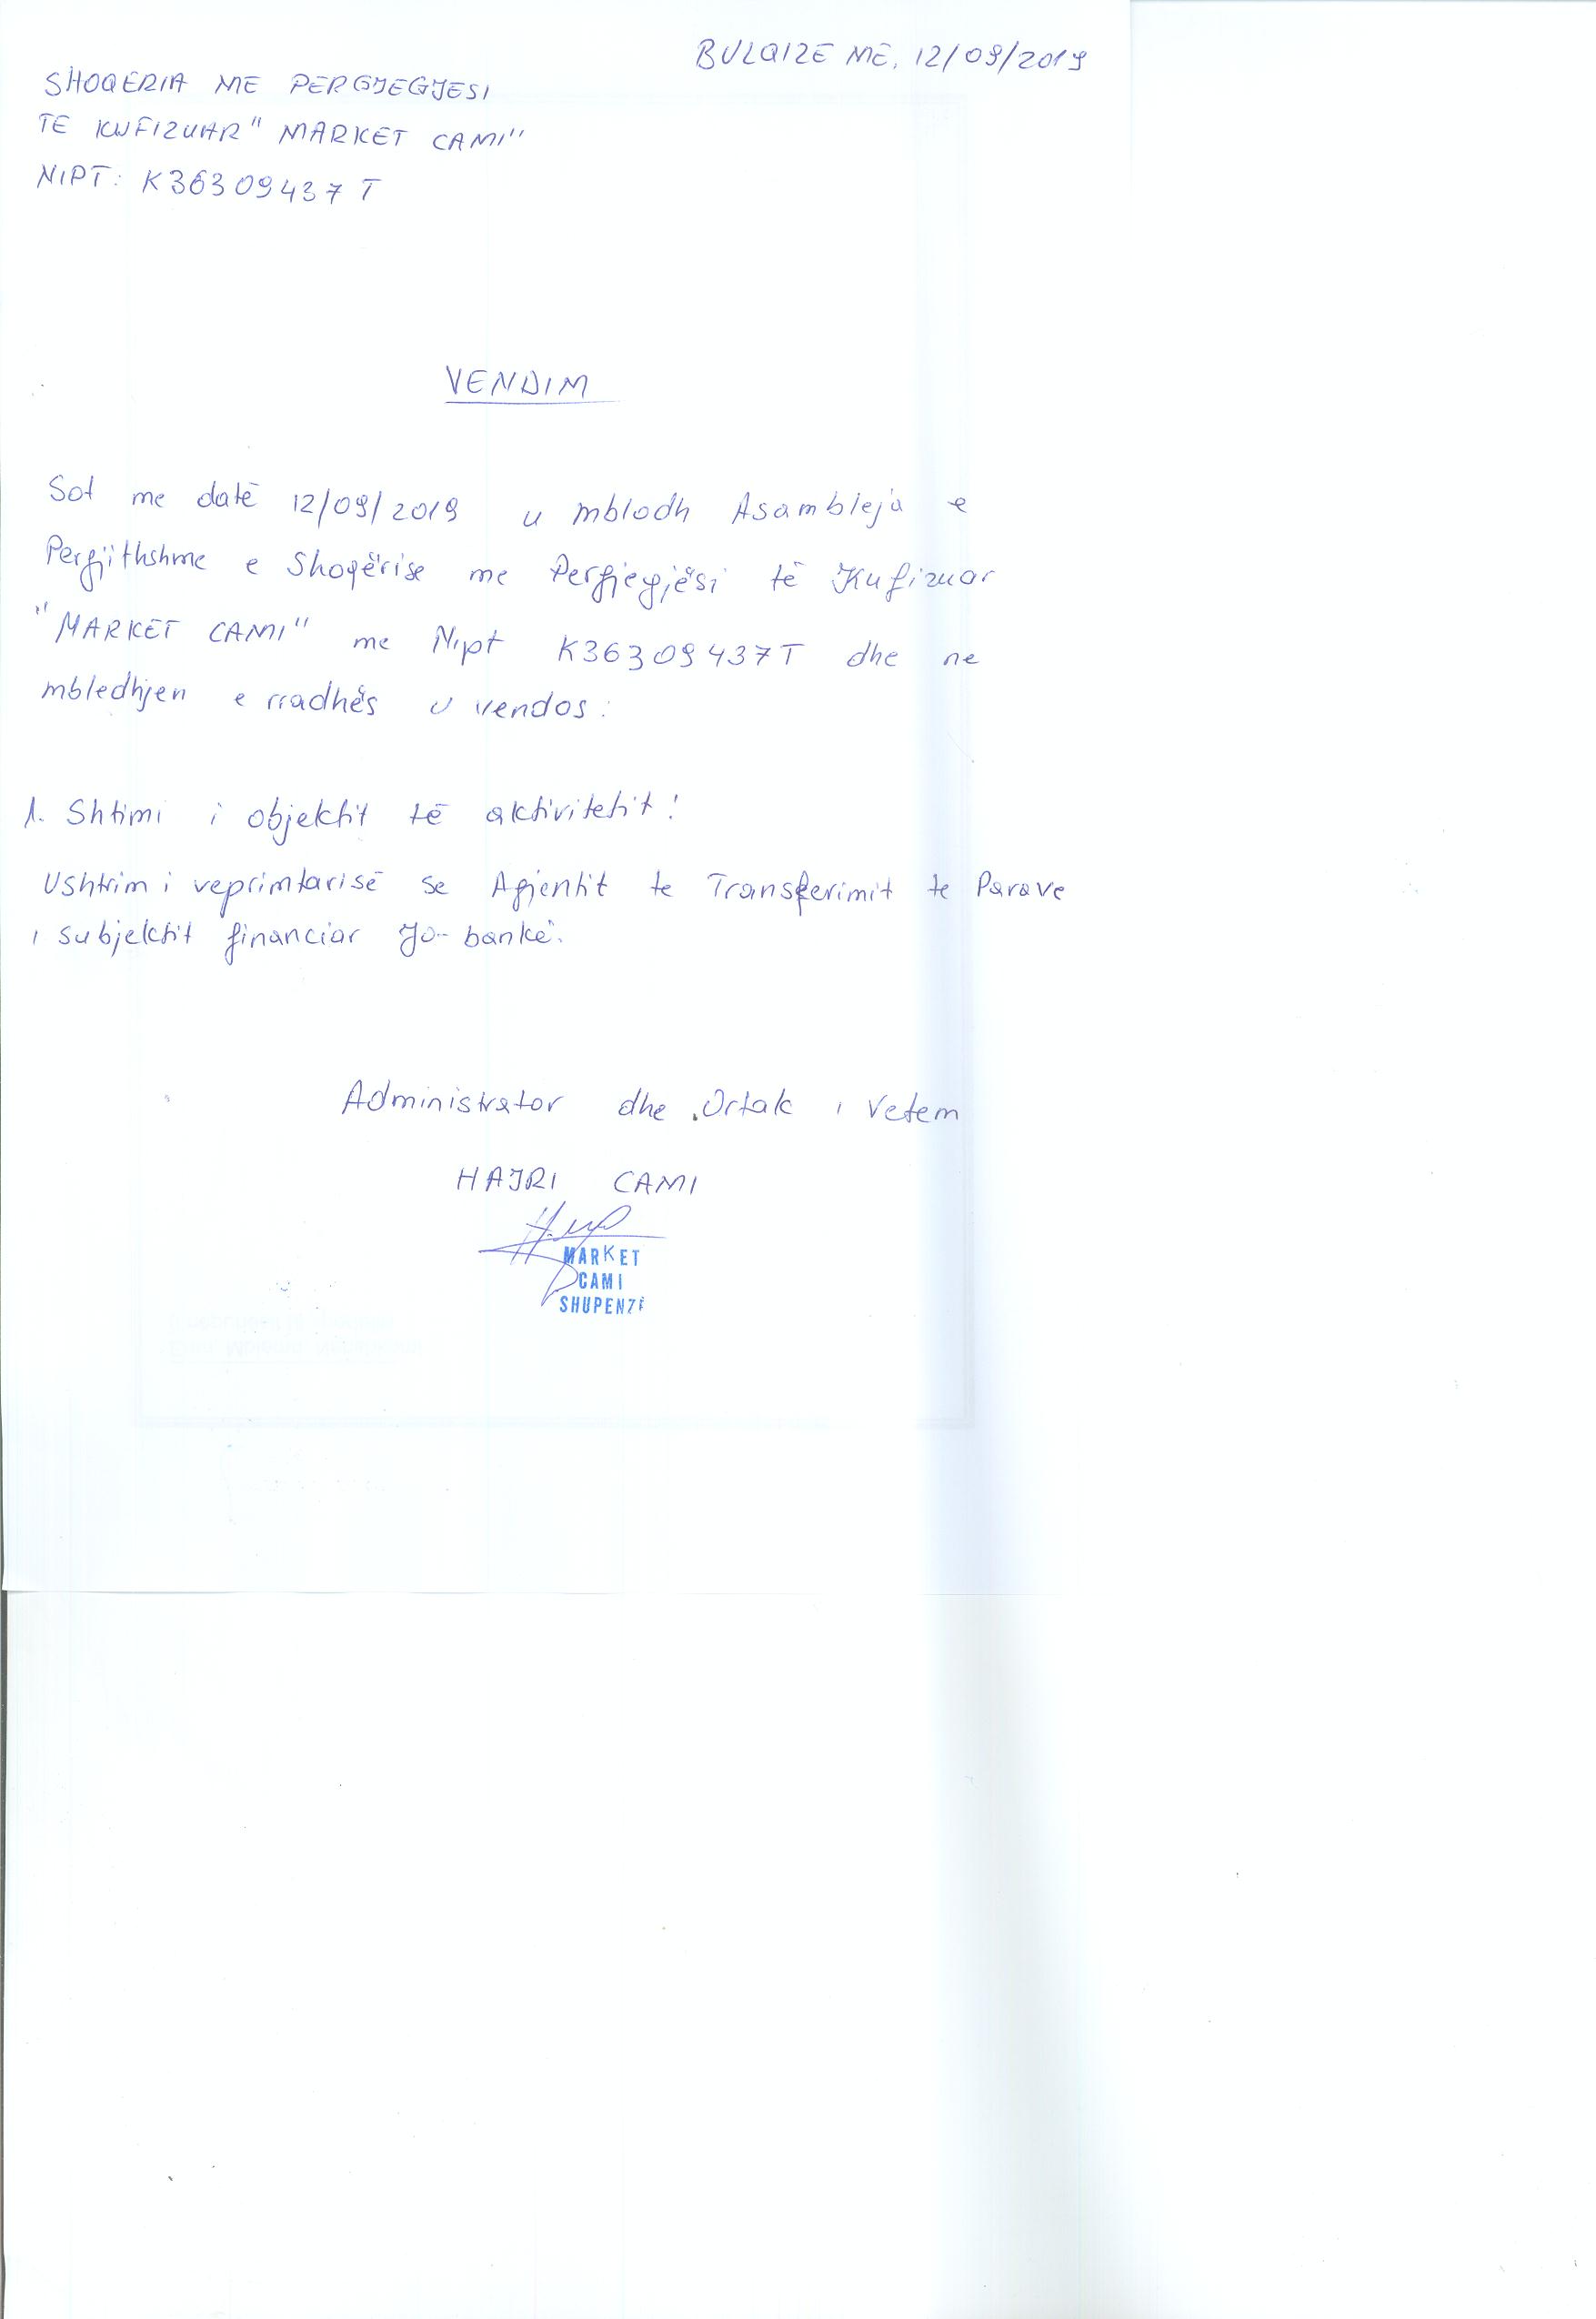 BULQIZE MË, 12/09/2019
SHOQERIA ME PERGJEGJESI
TE KUFIZUAR "MARKET CAMI"
NIPT: K36309437T
VENDIM
Sot me datë 12/09/2019 u mblodh Asambleja e
Pergjithshme e Shoqërise me Pergjegjësi të Kufizuar
"MARKET CAMI" me Nipt K36309437T dhe ne
mbledhjen e rradhës u vendos:
1. Shtimi i objektit të aktivitetit!
Ushtrimi veprimtarisë se Agjentit te Transferimit te Parave
i subjektit financiar Jo-bankë.
Administrator dhe Ortak i Vetem
HAJRI CAMI
MARKET
CAMI
SHUPENZË